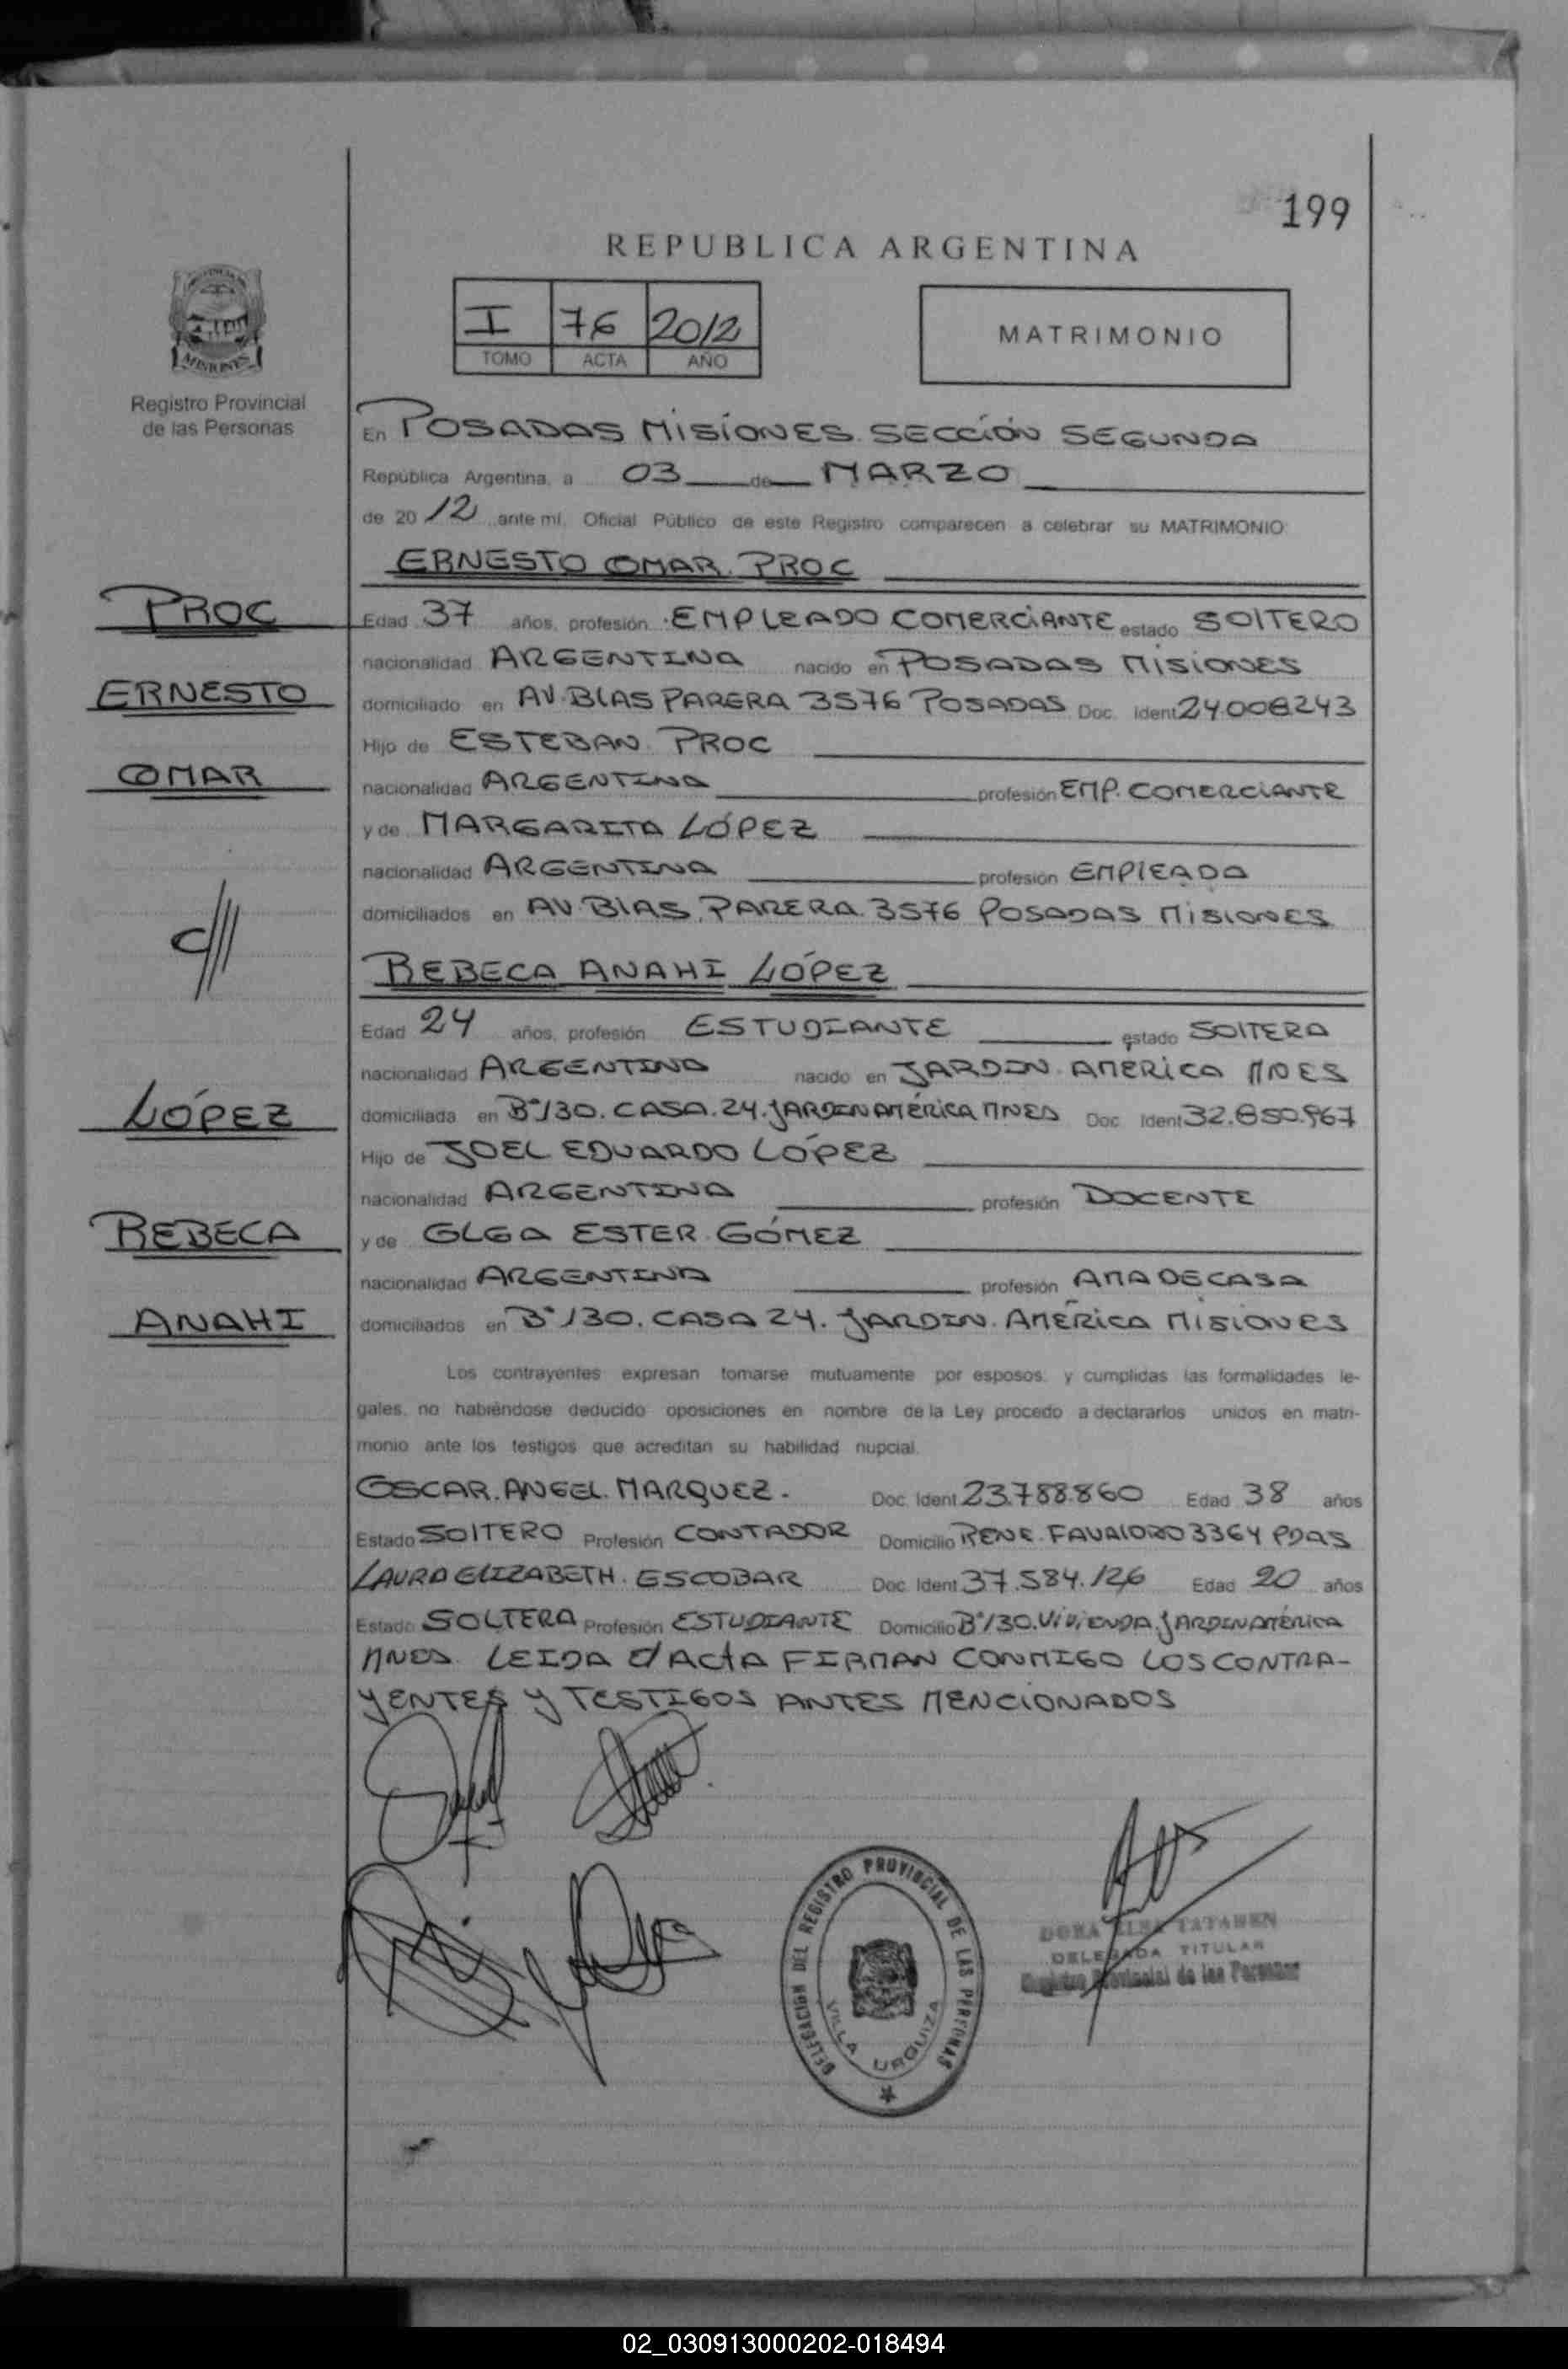 199
REPUBLICA ARGENTINA
I 76 2012
TOMO ACTA AÑO
MATRIMONIO
MISIONES
Registro Provincial
de las Personas
En POSADAS MISIONES. SECCIÓN SEGUNDA
República Argentina, a 03 de MARZO
de 2012 ante mí, Oficial Público de este Registro comparecen a celebrar su MATRIMONIO:
ERNESTO OMAR. PROC
PROC
ERNESTO
OMAR
Edad 37 años, profesión EMPLEADO COMERCIANTE estado SOLTERO
nacionalidad ARGENTINA nacido en POSADAS MISIONES
domiciliado en AV. BLAS PARERA 3576 POSADAS Doc. Ident 24.008243
Hijo de ESTEBAN PROC
nacionalidad ARGENTINA profesión EMP. COMERCIANTE
y de MARGARITA LÓPEZ
nacionalidad ARGENTINA profesión EMPLEADA
domiciliados en AV. BLAS. PARERA. 3576 POSADAS MISIONES
REBECA ANAHI LÓPEZ
LÓPEZ
REBECA
ANAHI
Edad 24 años, profesión ESTUDIANTE estado SOLTERA
nacionalidad ARGENTINA nacido en JARDIN AMERICA MNES
domiciliada en B°130. CASA. 24. JARDIN AMÉRICA MNES Doc. Ident 32.850.967
Hijo de JOEL EDUARDO LÓPEZ
nacionalidad ARGENTINA profesión DOCENTE
y de OLGA ESTER GÓMEZ
nacionalidad ARGENTINA profesión AMA DE CASA
domiciliados en B°130. CASA 24. JARDIN. AMÉRICA MISIONES
Los contrayentes expresan tomarse mutuamente por esposos; y cumplidas las formalidades le-
gales, no habiéndose deducido oposiciones en nombre de la Ley procedo a declararlos unidos en matri-
monio ante los testigos que acreditan su habilidad nupcial.
OSCAR. ANGEL. MARQUEZ. Doc. Ident 23.788.860 Edad 38 años
Estado SOLTERO Profesión CONTADOR Domicilio RENE. FAVALORO 3364 PDAS
LAURA ELIZABETH. ESCOBAR Doc. Ident 37.584.126 Edad 20 años
Estado SOLTERA Profesión ESTUDIANTE Domicilio B°130. VIVIENDA. JARDIN AMÉRICA
MNES. LEIDA EL ACTA FIRMAN CONMIGO LOS CONTRA-
YENTES Y TESTIGOS ANTES MENCIONADOS
DELEGACION DEL REGISTRO PROVINCIAL DE LAS PERSONAS
VILLA URQUIZA
DELEGADA TITULAR
Registro Provincial de las Personas
02_030913000202-018494